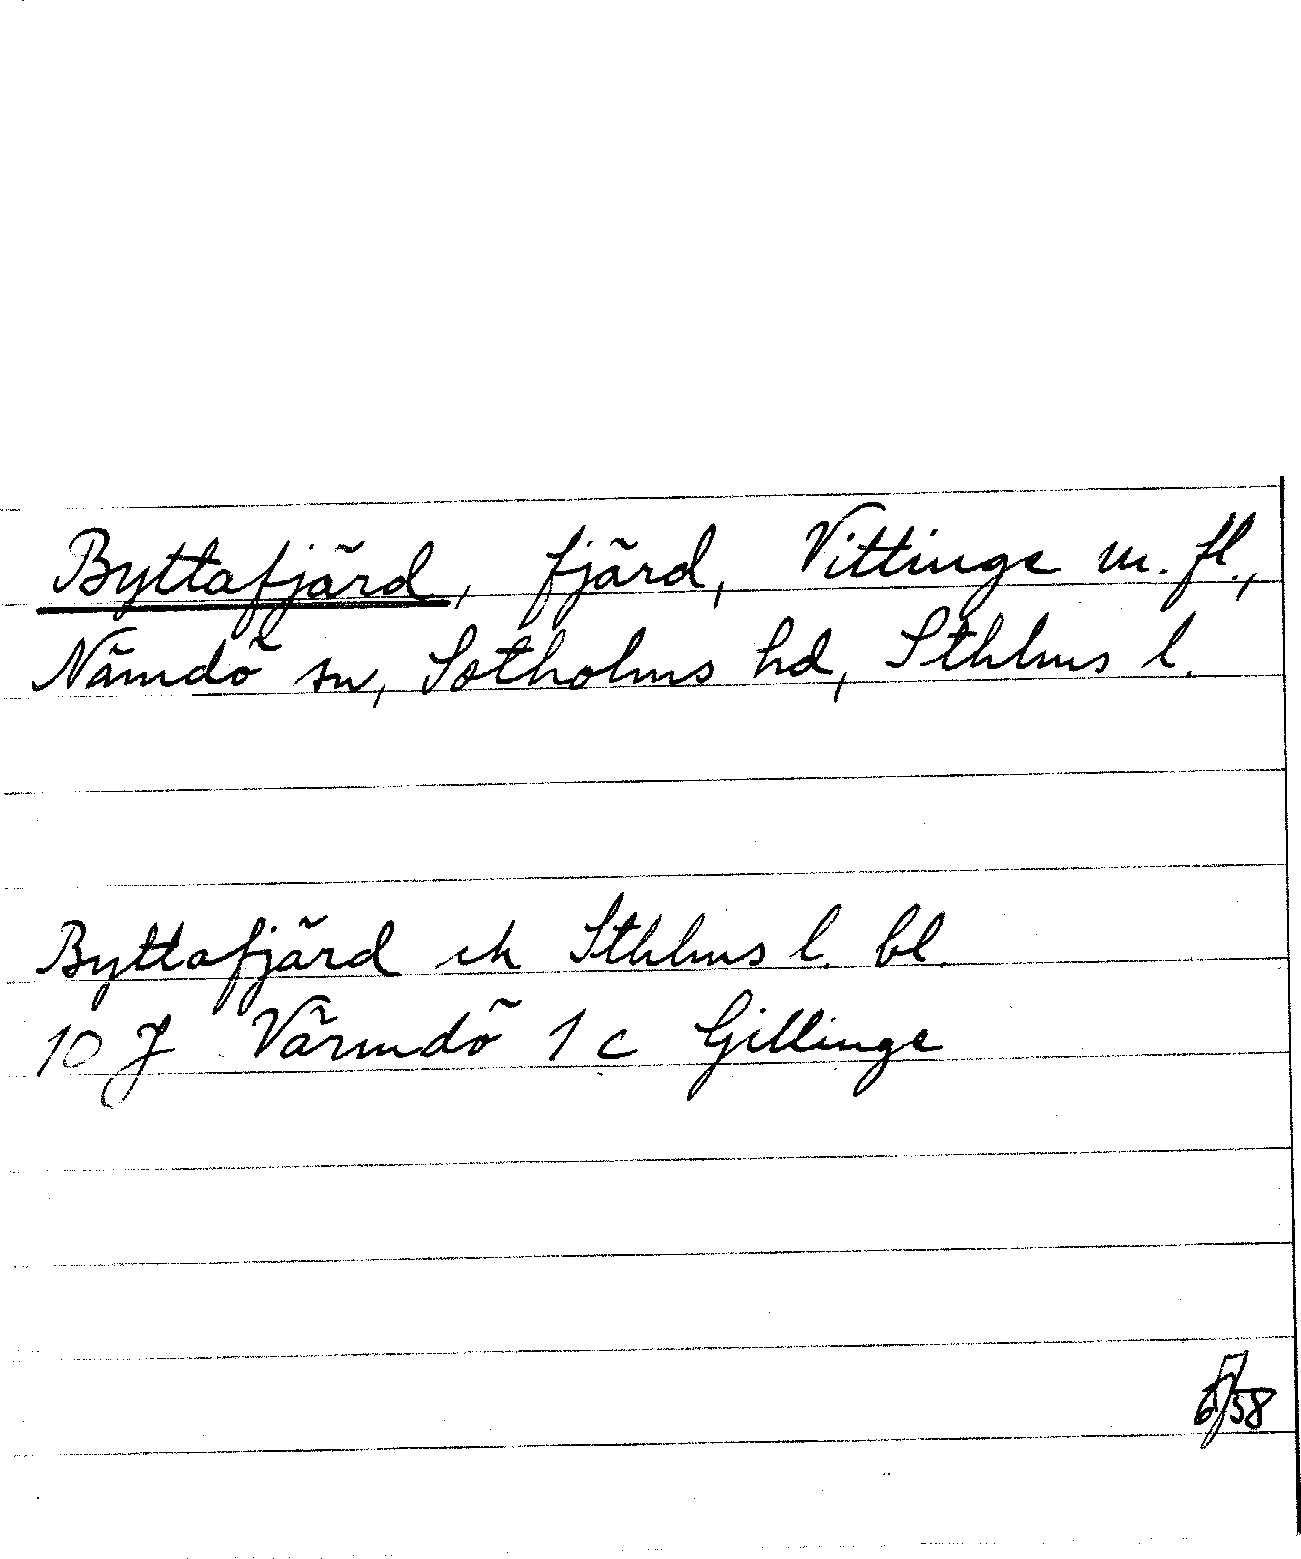 Byttafjärd, fjärd, Vittinge m. fl.,
Nämdö sn, Sotholms hd, Sthlms l.
Byttafjärd ek Sthlms l. bl.
10 J Värmdö 1 c Gillinge